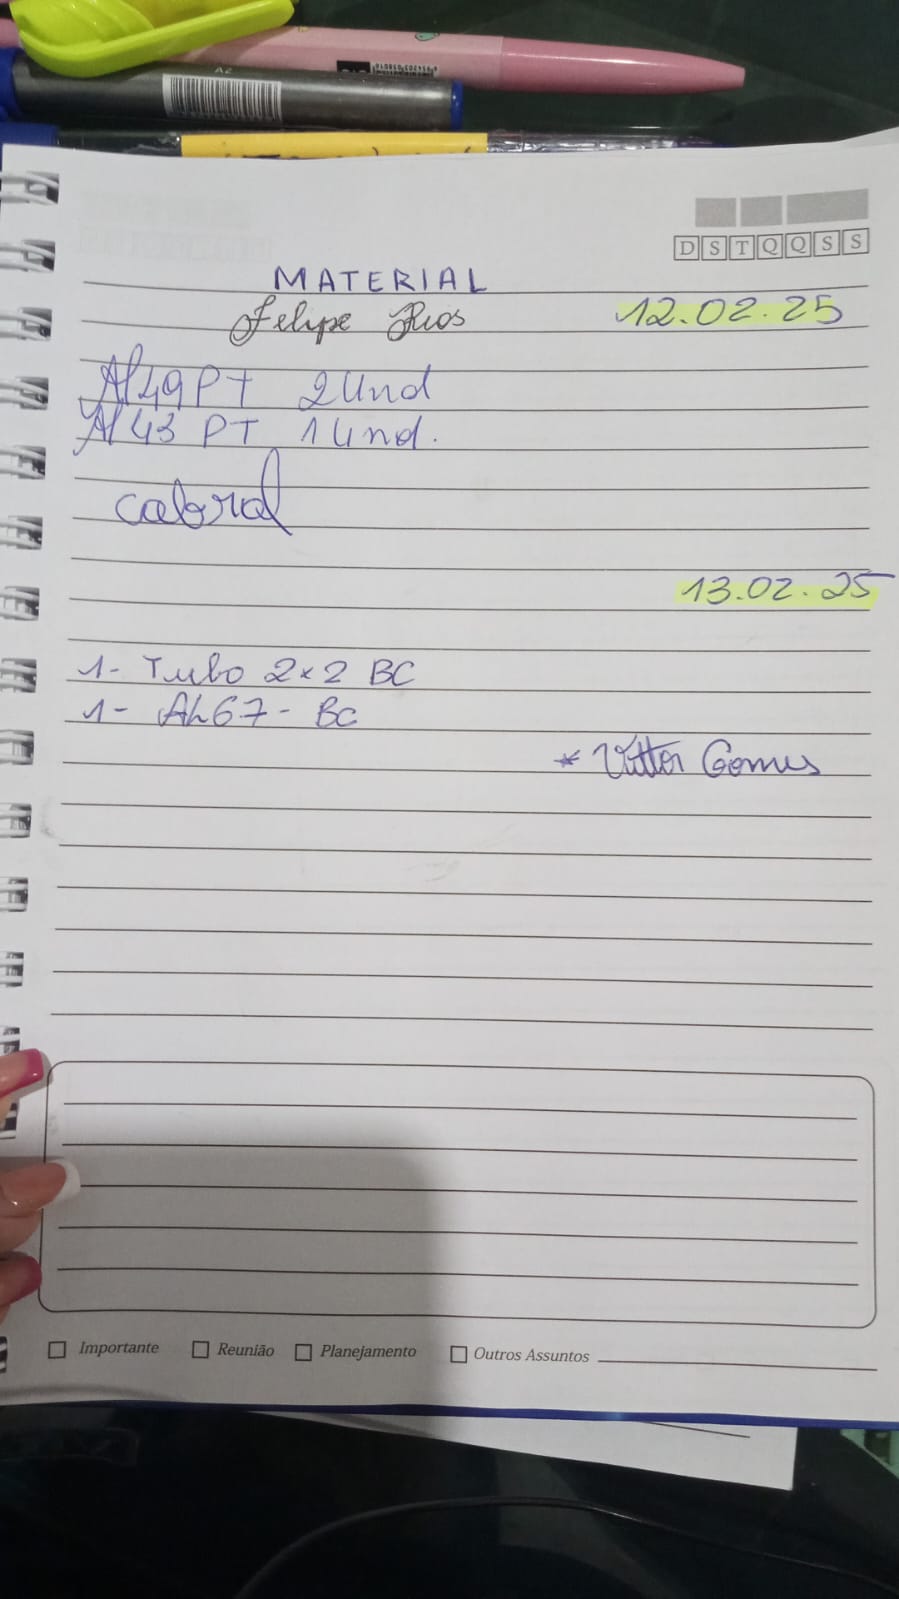 D S T Q Q S S
MATERIAL
Felipe Rios
12.02.25
Al 49 PT 2 Und
Al 43 PT 1 Und.
cabral
13.02.25
1- Tubo 2x2 BC
1- AL67- BC
* Vittor Gomes
Importante
Reunião
Planejamento
Outros Assuntos